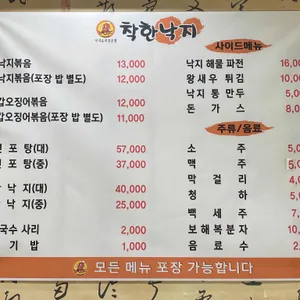 착한낙지
낙지볶음 13,000
낙지볶음(포장 밥 별도) 12,000
갑오징어볶음 12,000
갑오징어볶음(포장 밥 별도) 11,000
탕(대) 57,000
탕(중) 37,000
낙 지(대) 40,000
낙 지(중) 25,000
국수 사리 2,000
기 밥 1,000
사이드메뉴
낙지 해물 파전 16,0
왕새우 튀김 10,0
낙지 통 만두 5,0
돈 가 스 8,0
주류/음료
소 주 5,
맥 주 5,
막 걸 리 4,
청 하 5,
백 세 주 7,
보 해 복 분 자 10,
음 료 수 2,
모든 메뉴 포장 가능합니다